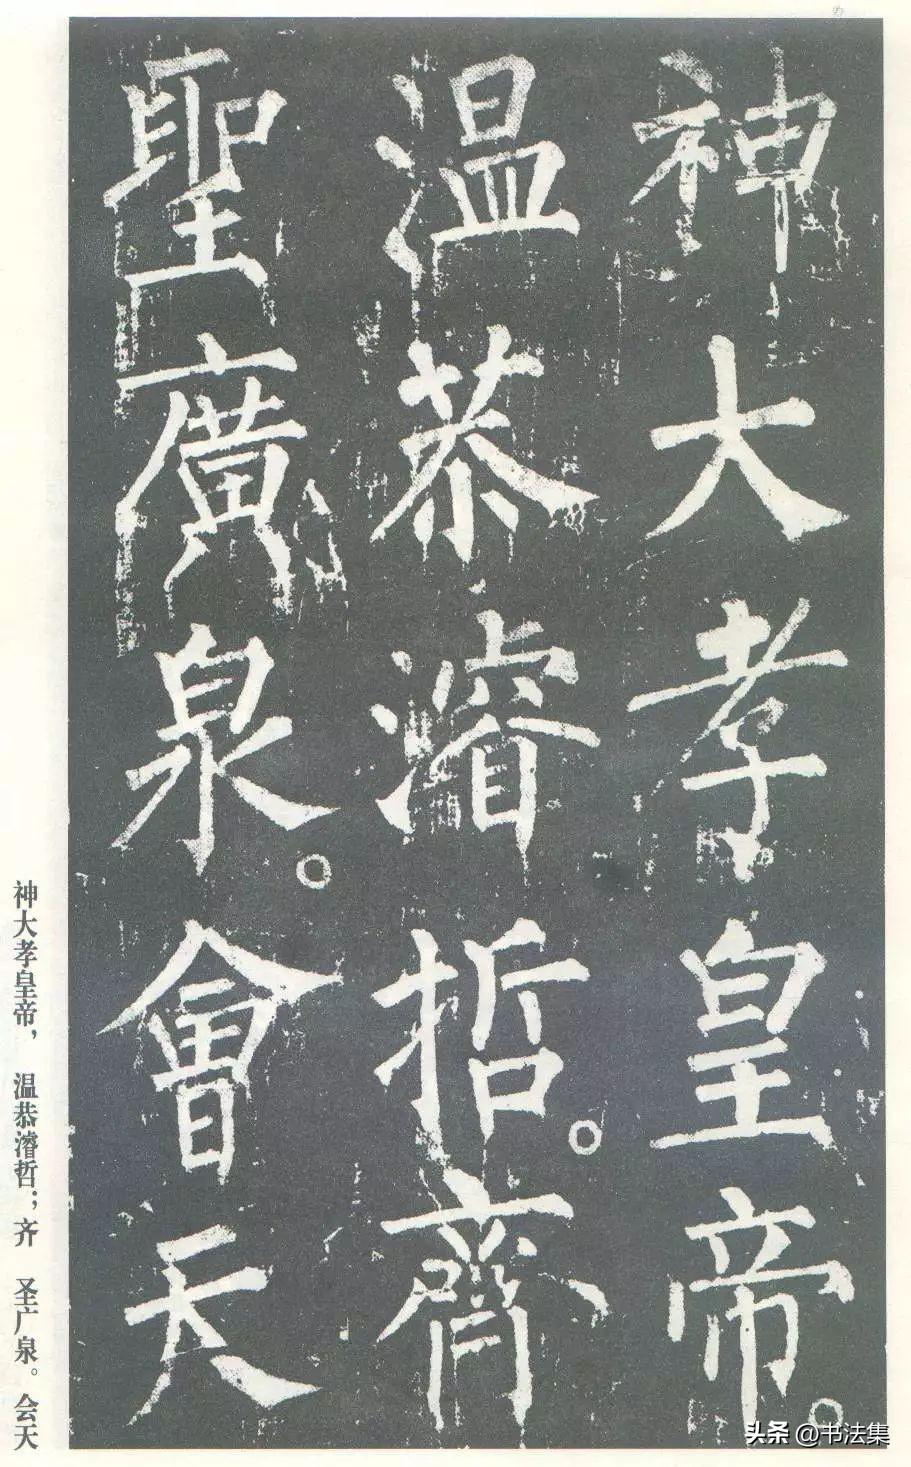 神大孝皇帝。
温恭濬哲。齊
聖廣泉。會天
神大孝皇帝，温恭濬哲；齐圣广泉。会天
头条 @书法集